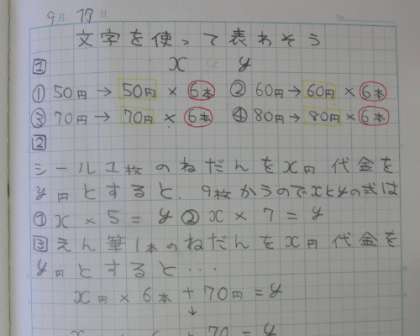 9// 19//
文字を使って表わそう
1 x y
①50円→50円×6本 ②60円→60円×6本
③70円→70円×6本 ④80円→80円×6本
2
シール1枚のねだんをx円 代金を
y円とすると、9枚かうのでxとyの式は
①x×5=y ②x×7=y
3えん筆1本のねだんをx円 代金を
y円とすると…
x円×6本+70円=y
↓